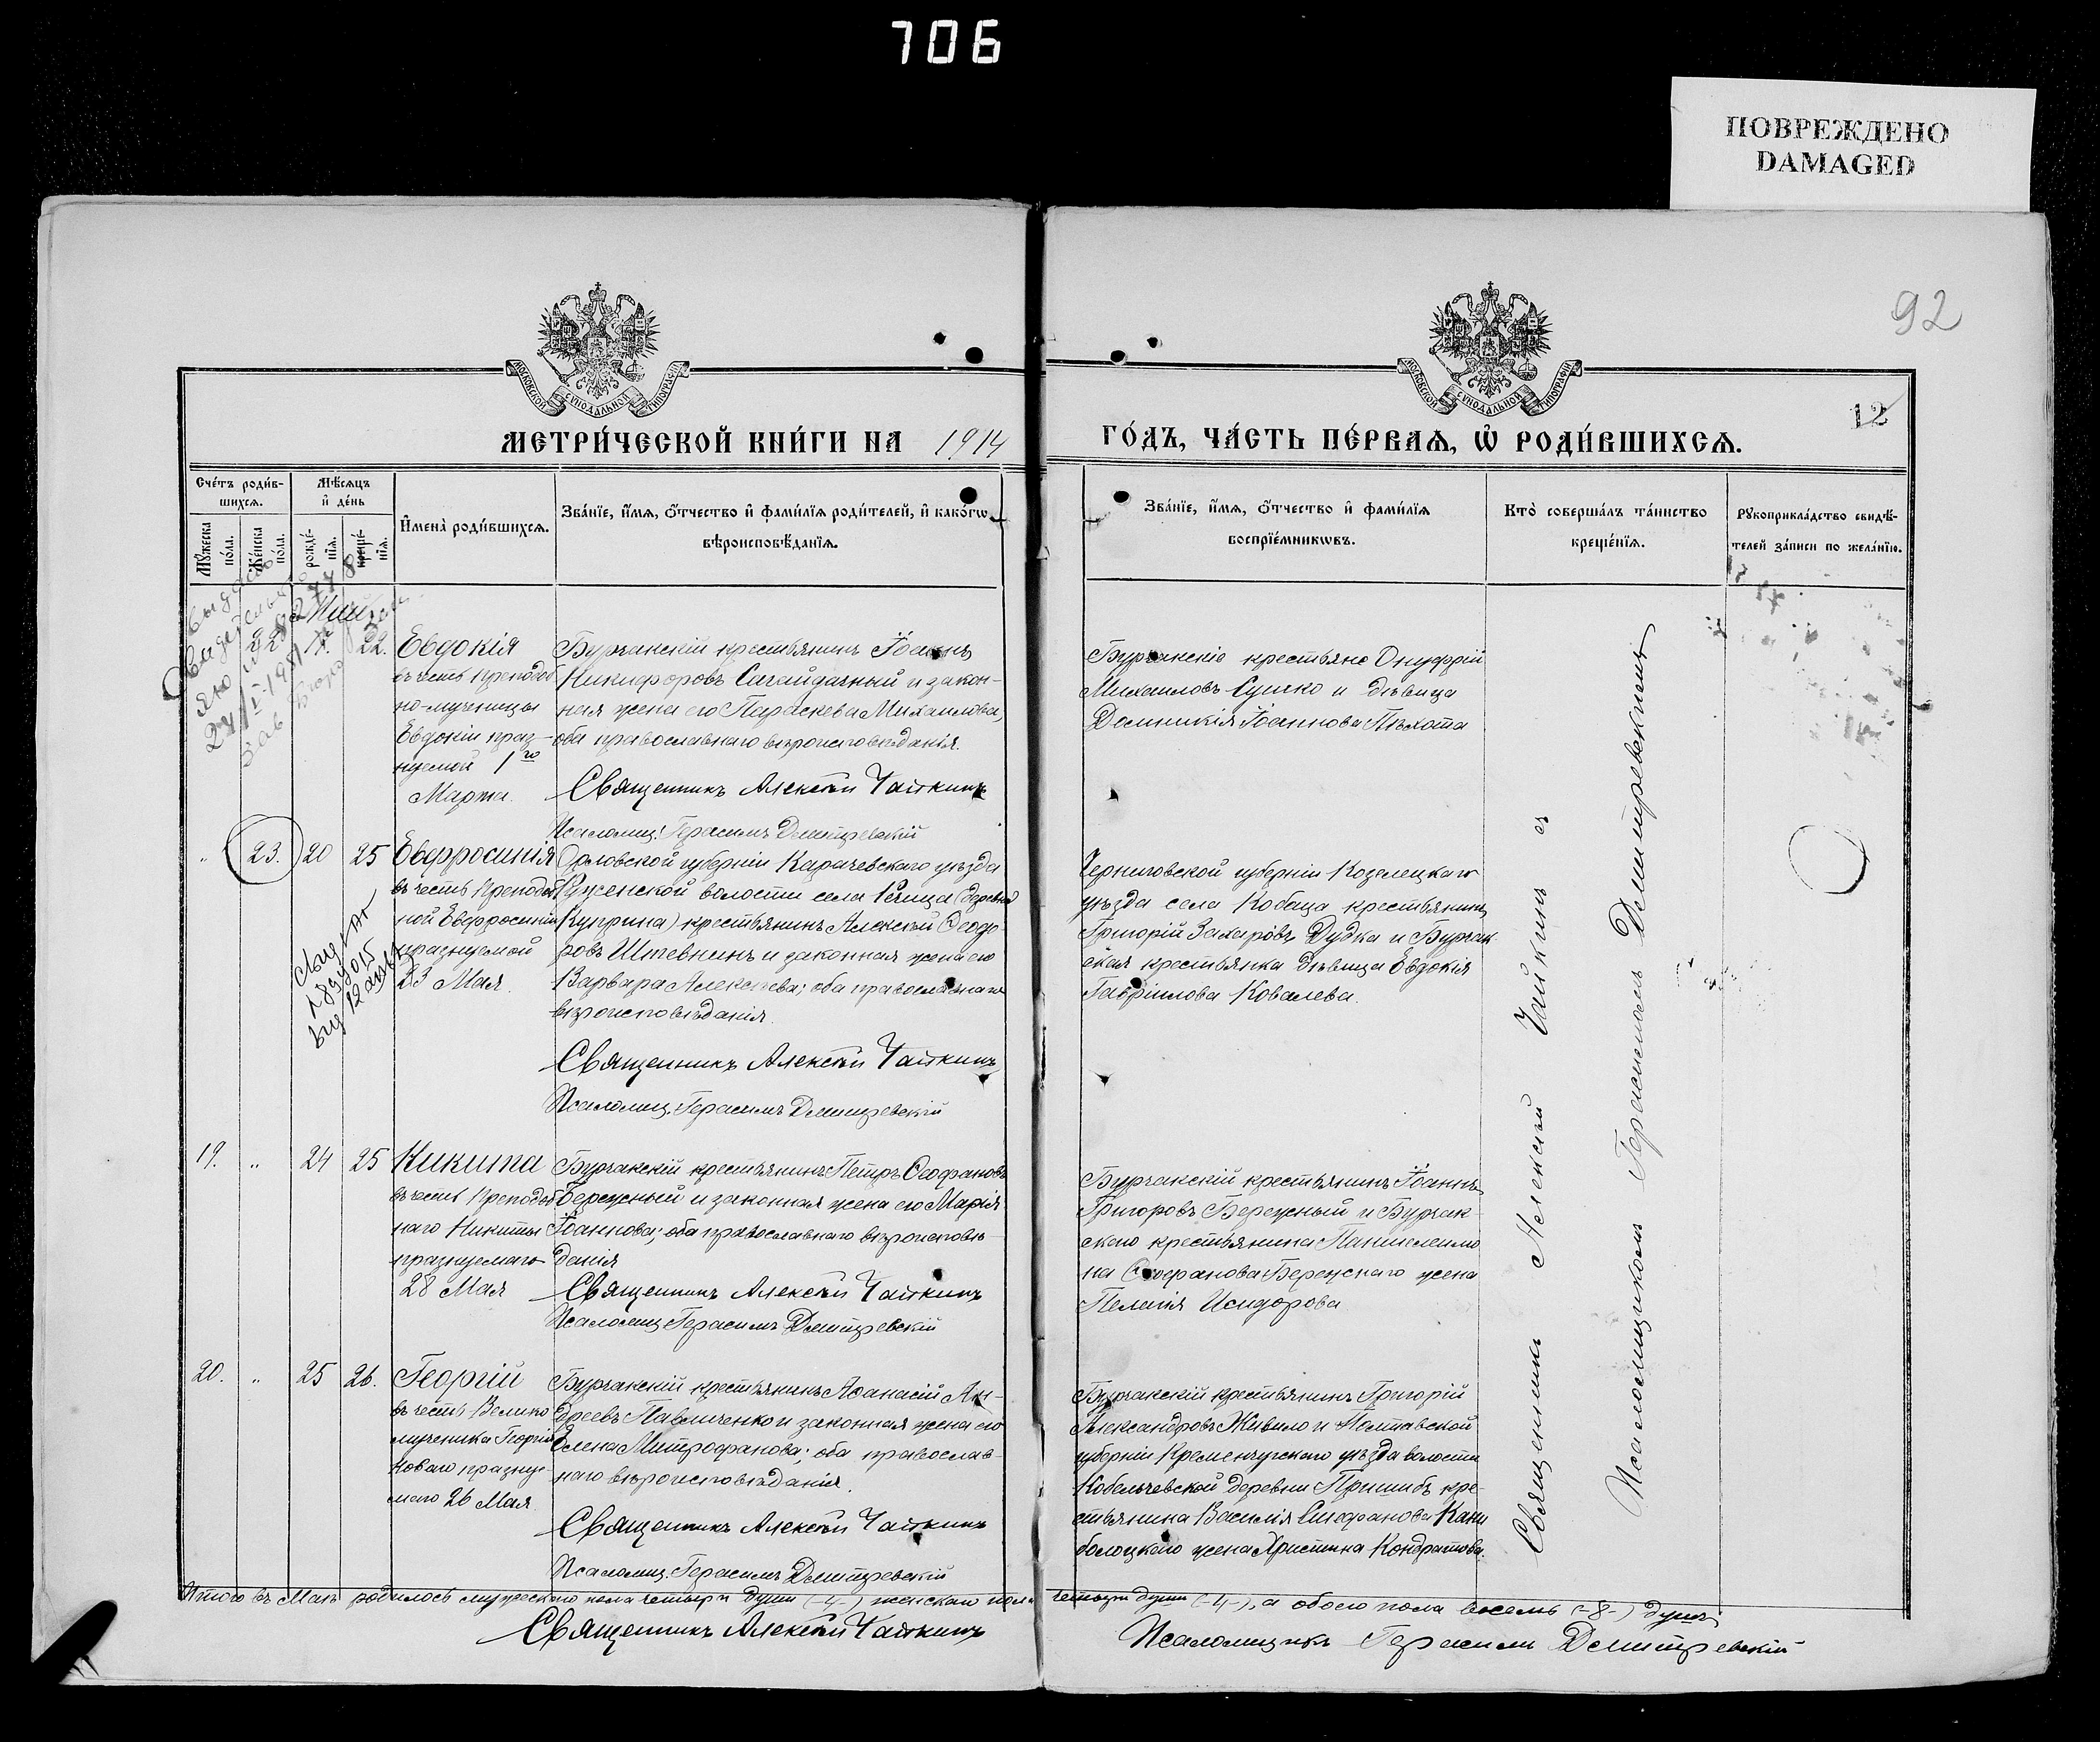 706
ПОВРЕЖДЕНО
DAMAGED
92
12
МОСКОВСКОЙ СѴНОДАЛЬНОЙ ТИПОГРАФІИ
МОСКОВСКОЙ СѴНОДАЛЬНОЙ ТИПОГРАФІИ
МЕТРИ́ЧЕСКОЙ КНИ́ГИ НА 1914 ГО́ДЪ, ЧА́СТЬ ПЕ́РВАѦ, Ѡ҆ РОДИ́ВШИХСѦ.
Сче́тъ роди́в-
шихсѧ.
Мѣ́сѧцъ
и҆ де́нь
Мꙋ́жеска
по́ла.
Же́нска
по́ла.
рожде́-
нїѧ.
креще́-
нїѧ.
И҆мена̀ роди́вшихсѧ.
Зва́нїе, и҆́мѧ, ѻ҆́тчество и҆ фами́лїѧ роди́телей, и҆ како́гѡ
вѣроисповѣ́данїѧ.
Зва́нїе, и҆́мѧ, ѻ҆́тчество и҆ фами́лїѧ
воспрїе́мникѡвъ.
Кто̀ соверша́лъ та́инство
креще́нїѧ.
Рꙋкоприкла́дство свидѣ́-
телей за́писи по жела́нїю.
Май
22 17. 22. Евдокія
въ честь преподоб
но-мученицы
Евдокіи праз-
нуемой 1го
Марта.
Бурчакскій крестьянинъ Іоаннъ
Никифоровъ Сагайдачный и закон-
ная жена его Параскева Михаилова,
оба православнаго вѣроисповѣданія.
Священникъ Алексѣй Чайкинъ
Псаломщ. Герасимъ Дмитревскій
Бурчакскіе крестьяне Онуфрій
Михаиловъ Сушко и дѣвица
Домникія Іоаннова Пѣхота
" 23. 20 25 Евфросинія
въ честь преподоб
ной Евфросиніи
празнуемой
23 Мая.
Орловской губерніи Карачевскаго уѣзда
волости села (деревня
Куприна) крестьянинъ Алексѣй Ѳеодо-
ровъ Штевнинъ и законная жена его
Варвара Алексѣева; оба православнаго
вѣроисповѣданія.
Священникъ Алексѣй Чайкинъ
Псаломщ. Герасимъ Дмитревскій
Черниговской губерніи Козелецкаго
уѣзда села Кобыща крестьянинъ
Григорій Захаровъ Дудка и Бурчак-
ская крестьянка дѣвица Евдокія
Гавріилова Ковалева.
19. " 24 25 Никита
въ честь преподоб
наго Никиты
празнуемаго
28 Мая
Бурчакскій крестьянинъ Петръ Ѳеофановъ
Бережный и законная жена его Марія
Іоаннова; оба православнаго вѣроисповѣ-
данія
Священникъ Алексѣй Чайкинъ
Псаломщ. Герасимъ Дмитревскій
Бурчакскій крестьянинъ Іоаннъ
Григоровъ Бережный и Бурчак-
скаго крестьянина Пантелеимо
на Ѳеофанова Бережнаго жена
Пелагія Исидорова
20. " 25 26. Георгій
въ честь Велико
мученика Георгія
Новаго празнуе-
маго 26 Мая.
Бурчакскій крестьянинъ Аѳанасій Ан-
дреевъ Павличенко и законная жена его
Елена Митрофанова; оба православ-
наго вѣроисповѣданія.
Священникъ Алексѣй Чайкинъ
Псаломщ. Герасимъ Дмитревскій
Бурчакскій крестьянинъ Григорій
Александровъ Живило и Полтавской
губерніи Кременчугскаго уѣзда волости
Кобелячевской деревни Пришибъ кре-
стьянина Василія Стефанова
жена Христина Кондратова.
Священникъ Алексѣй Чайкинъ съ
Псаломщикомъ Герасимомъ Дмитревскимъ
Итого въ Маѣ родилось мужескаго пола четыри души (-4-) женскаго пола четыри души (-4-), а обоего пола восемь (-8-) душъ
Священникъ Алексѣй Чайкинъ Псаломщикъ Герасимъ Дмитревскій